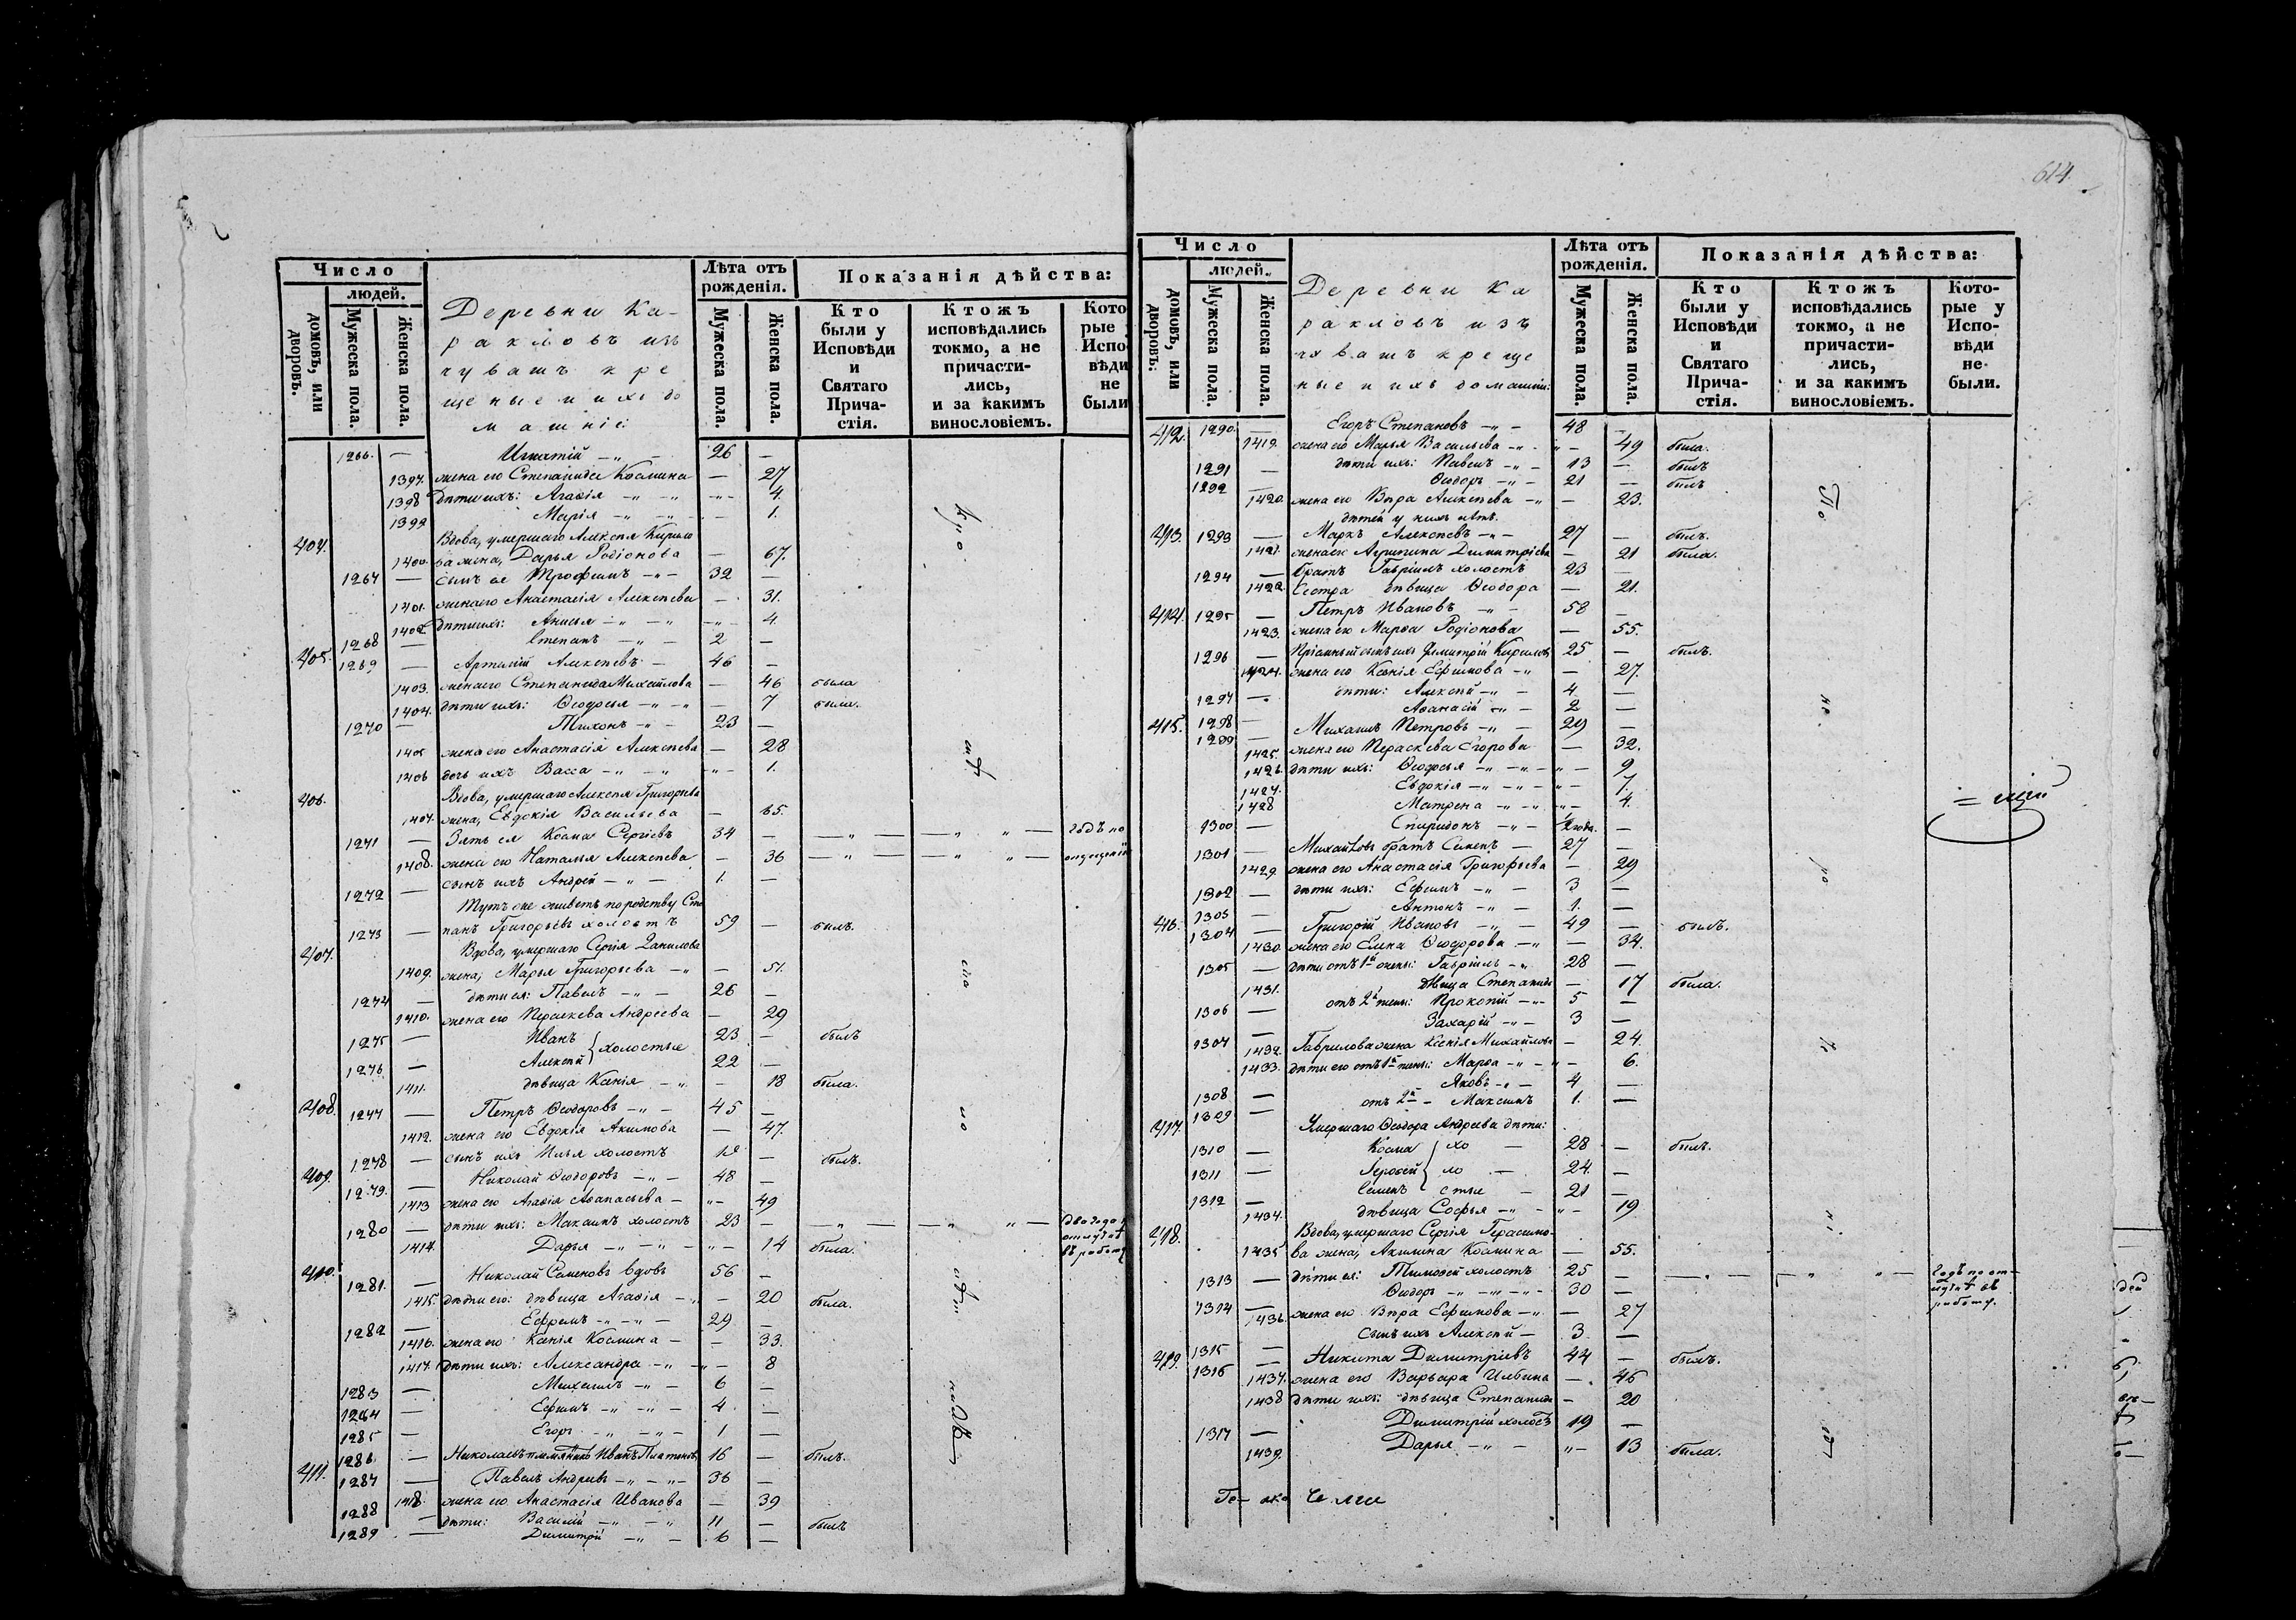 614.
Число
людей.
домовъ, или дворовъ.
Мужеска пола.
Женска пола.
Деревни Ка-
ракловъ изъ
чувашъ кре
щеные и ихъ до
машніе
Лѣта отъ рожденія.
Мужеска пола.
Женска пола.
Показанія дѣйства:
Кто были у Исповѣди и Святаго Прича-стія.
Ктожъ исповѣдались токмо, а не причасти-лись, и за какимъ винословіемъ.
Кото рые Испо вѣди не были
1266. — Игнатій —„— 26 —
1397. жена его Степанида Космина — 27
1398 дѣти ихъ: Агафія —„— —„— 4.
1399 Марія —„— —„— — 1.
404. Вдова, умершаго Алексѣя Кирило
1400. ва жена, Дарья Родіонова — 67.
1267 — сынъ ее Трофимъ —„— 32 —
1401. жена его Анастасія Алексѣева — 31.
1402 дѣти ихъ: Анисья —„— —„— 4
1268 — Степанъ —„— 2 —
405. 1269 — Артемій Алексѣевъ — 46 —
1403. жена его Степанида Михайлова — 46 была
1404. дѣти ихъ: Ѳеодосья —„—„ — 7 была.
1270 — Тихонъ —„— 23 —
1405 жена его Анастасія Алексѣева — 28
1406 дочь ихъ Васса —„— —„— 1.
406. Вдова, умершаго Алексѣя Григорьева
1407. жена, Евдокія Васильева — 65.
1271 — Зять ея Косма Сергіевъ 34 — —„— —„ „— годъ по
1408. жена его Наталья Алексѣева — 36 —„— —„ „—
1272 — сынъ ихъ Андрей —„— 1. —
Тутъ же живетъ по родству Сте
1273 — панъ Григорьевъ холостъ 59 — былъ.
407. Вдова, умершаго Сергія Данилова
1409. жена, Марья Григорьева —„ — 51.
1274 — дѣти ея: Павелъ —„— 26 —
1410. жена его Пераскева Андреева — 29
1275 — Иванъ } холостые 23 — былъ
1276 — Алексѣй 22 —
1411. дѣвица Ксенія —„— — 18 была.
408. 1277 — Петръ Ѳеодоровъ —„— 45 —
1412. жена его Евдокія Акимова — 47.
1278 — сынъ ихъ Илья холостъ 18 — былъ.
409. 1279. — Николай Ѳеодоровъ —„— 48 —
1413 жена его Агафія Аѳанасьева — —„— 49
1280 — дѣти ихъ: Максимъ холостъ 23 — —„— —„ „— два года
1414. Дарья —„— —„— 14 была. въ работу
410. 1281. — Николай Семеновъ вдовъ 56 —
1415. дѣти его: дѣвица Агафія —„— — 20 была.
1282 — Ефремъ —„—„— 29 —
1416. жена его Ксенія Космина — — 33.
1417. дѣти ихъ: Александра —„— „— 8
1283 — Михаилъ —„— 6 —
1284 — Ефимъ —„—„— 4. —
1285 — Егоръ —„—„— 1 —
1286. — Николаевъ племянникъ Иванъ Платоновъ 16 — былъ.
411. 1287 — Павелъ Андреевъ —„—„— 36 —
1418. жена его Анастасія Иванова — 39
1288 — дѣти: Василій —„— —„ 11 — былъ
1289 — Димитрій —„— 6 —
Число
людей.
домовъ, или дворовъ.
Мужеска пола.
Женска пола.
Деревни Ка
ракловъ изъ
чувашъ креще
ные и ихъ домашніи:
Лѣта отъ рожденія.
Мужеска пола.
Женска пола.
Показанія дѣйства:
Кто были у Исповѣди и Святаго Прича-стія.
Ктожъ исповѣдались токмо, а не причасти-лись, и за какимъ винословіемъ.
Кото-рые у Испо-вѣди не были.
412. 1290. — Егоръ Степановъ —„— 48 —
1419. жена его Марья Васильева —„— „— 49 была.
1291 — дѣти ихъ: Павелъ —„— 13 — былъ
1292 — Ѳеодоръ —„— 21 — былъ
1420. жена его Вѣра Алексѣева —„ — 23.
дѣтей у нихъ нѣтъ.
413. 1293 — Маркъ Алексѣевъ —„— 27 — былъ.
1421. жена его Агрипина Димитріева — 21 была.
1294 — братъ Гавріилъ холостъ 23 —
1422. Сестра дѣвица Ѳеодора — 21.
414. 1295 — Петръ Ивановъ —„— 58 —
1423. жена его Марѳа Родіонова — 55.
1296 — Пріемный сынъ ихъ Димитрій Кириловъ 25 — былъ.
1424. жена его Ксенія Ефимова —„ — 27.
1297 — дѣти: Алексѣй —„— 4 —
1298 — Аѳанасій —„— 2 —
415. 1299 — Михаилъ Петровъ —„— 29 —
1425. жена его Пераскева Егорова — 32.
1426. дѣти ихъ: Ѳеодосья —„—„— „— 9
1427. Евдокія —„—„— „— 7.
1428 Матрена —„—„ „— 4.
1300 — Спиридонъ —„— 2 года. —
1301 — Михайловъ братъ Семенъ — 27 —
1429. жена его Анастасія Григорьева — 29
1302 — дѣти ихъ: Ефимъ —„— 3 —
1303 — Антонъ —„— 1. —
416. 1304 — Григорій Ивановъ —„— 49 — былъ.
1430. жена его Елена Ѳеодорова —„ — 34.
1305 — дѣти отъ 1й жены: Гавріилъ —„ 28 —
1431. дѣвица Степанида — 17 была.
1306 — отъ 2й жены: Прокопій —„— 5 —
1307 — Захарій —„— 3 —
1432. Гаврилова жена Ксенія Михайлова — 24.
1433. дѣти его отъ 1й жены: Марѳа —„— „— 6.
1308 — Яковъ —„— 4 —
1309 — отъ 2й — Максимъ 1. —
417. Умершаго Ѳеодора Андреева дѣти:
1310 — Косма } хо — 28 — былъ.
1311 — Іероѳей } ло — 24. —
1312 — Семенъ } стые — 21 —
1434. дѣвица Софья —„— „— 19
418. Вдова, умершаго Сергія Герасимо-
1435 ва жена, Акилина Космина — 55.
1313 — дѣти ея: Тимоѳей холостъ 25 — —„— —„ „— Годъ по от-
1314 — Ѳеодоръ —„—„—„— 30 — работу.
1436. жена его Вѣра Ефимова —„— — 27
1315 — сынъ ихъ Алексѣй — 3 —
419. 1316 — Никита Димитріевъ 44 — былъ.
1437. жена его Варвара Ильина — 46
1438 дѣти ихъ: дѣвица Степанида — 20
1317 — Димитрій холостъ 19 —
1439. Дарья —„— „— 13 была.